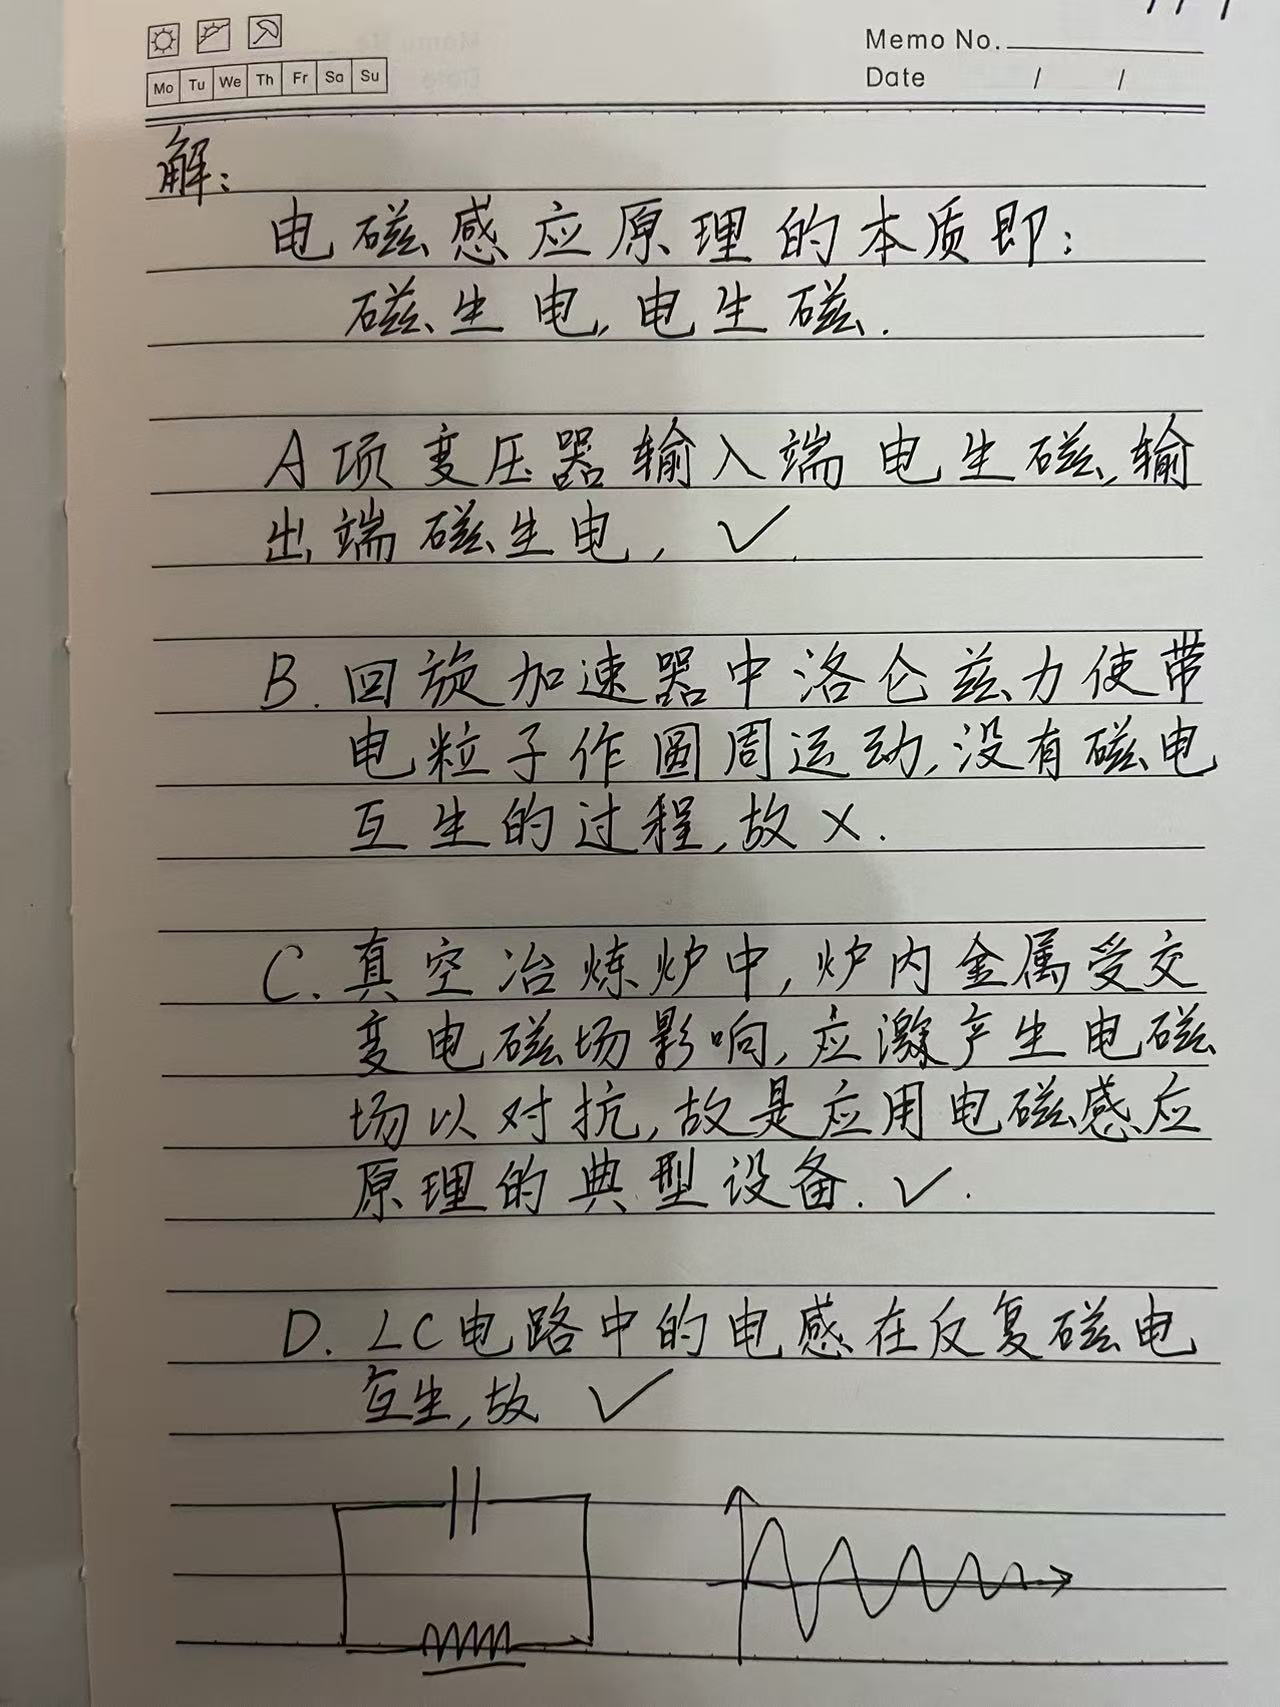 Memo No.
Mo Tu We Th Fr Sa Su
Date / /
解:
电磁感应原理的本质即:
磁生电,电生磁.
A项变压器输入端电生磁,输
出端磁生电, ✓.
B. 回旋加速器中洛仑兹力使带
电粒子作圆周运动,没有磁电
互生的过程,故×.
C. 真空冶炼炉中,炉内金属受交
变电磁场影响,应激产生电磁
场以对抗,故是应用电磁感应
原理的典型设备. ✓.
D. LC电路中的电感在反复磁电
互生,故 ✓